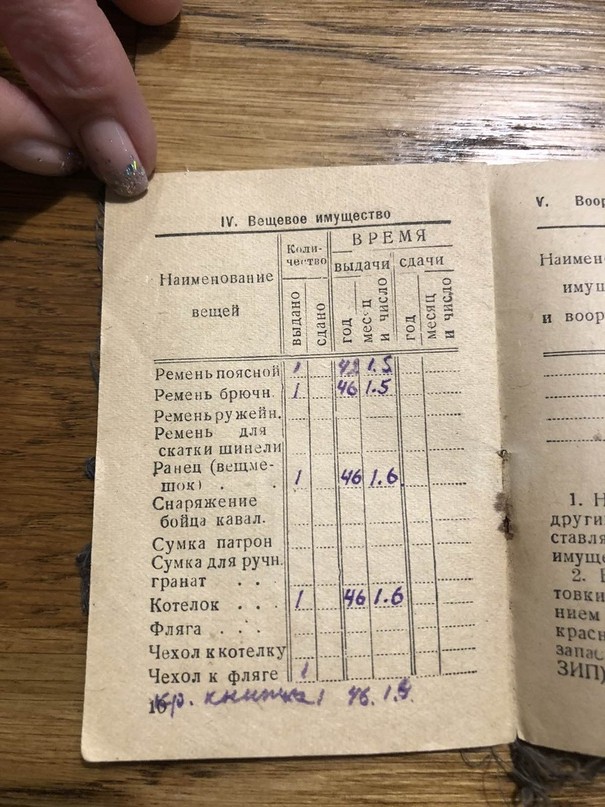 IV. Вещевое имущество
Наименование вещей
Коли-
чество
ВРЕМЯ
выдачи сдачи
выдано
сдано
год
мес ц и число
год
месяц и число
Ремень поясной 1 1.5
Ремень брючн. 1 46 1.5
Ремень ружейн.
Ремень для
скатки шинели
Ранец (вещме-
шок) . . 1 46 1.6
Снаряжение
бойца кавал.
Сумка патрон
Сумка для ручн.
гранат . .
Котелок . . . 1 46 1.6
Фляга . . .
Чехол к котелку
Чехол к фляге 1
кр. книжка 1 46
V. Воор
Наимен
имущ
и воор
1. Н
други
ставля
имуще
2. В
товки
нием
красн
запас
ЗИП)